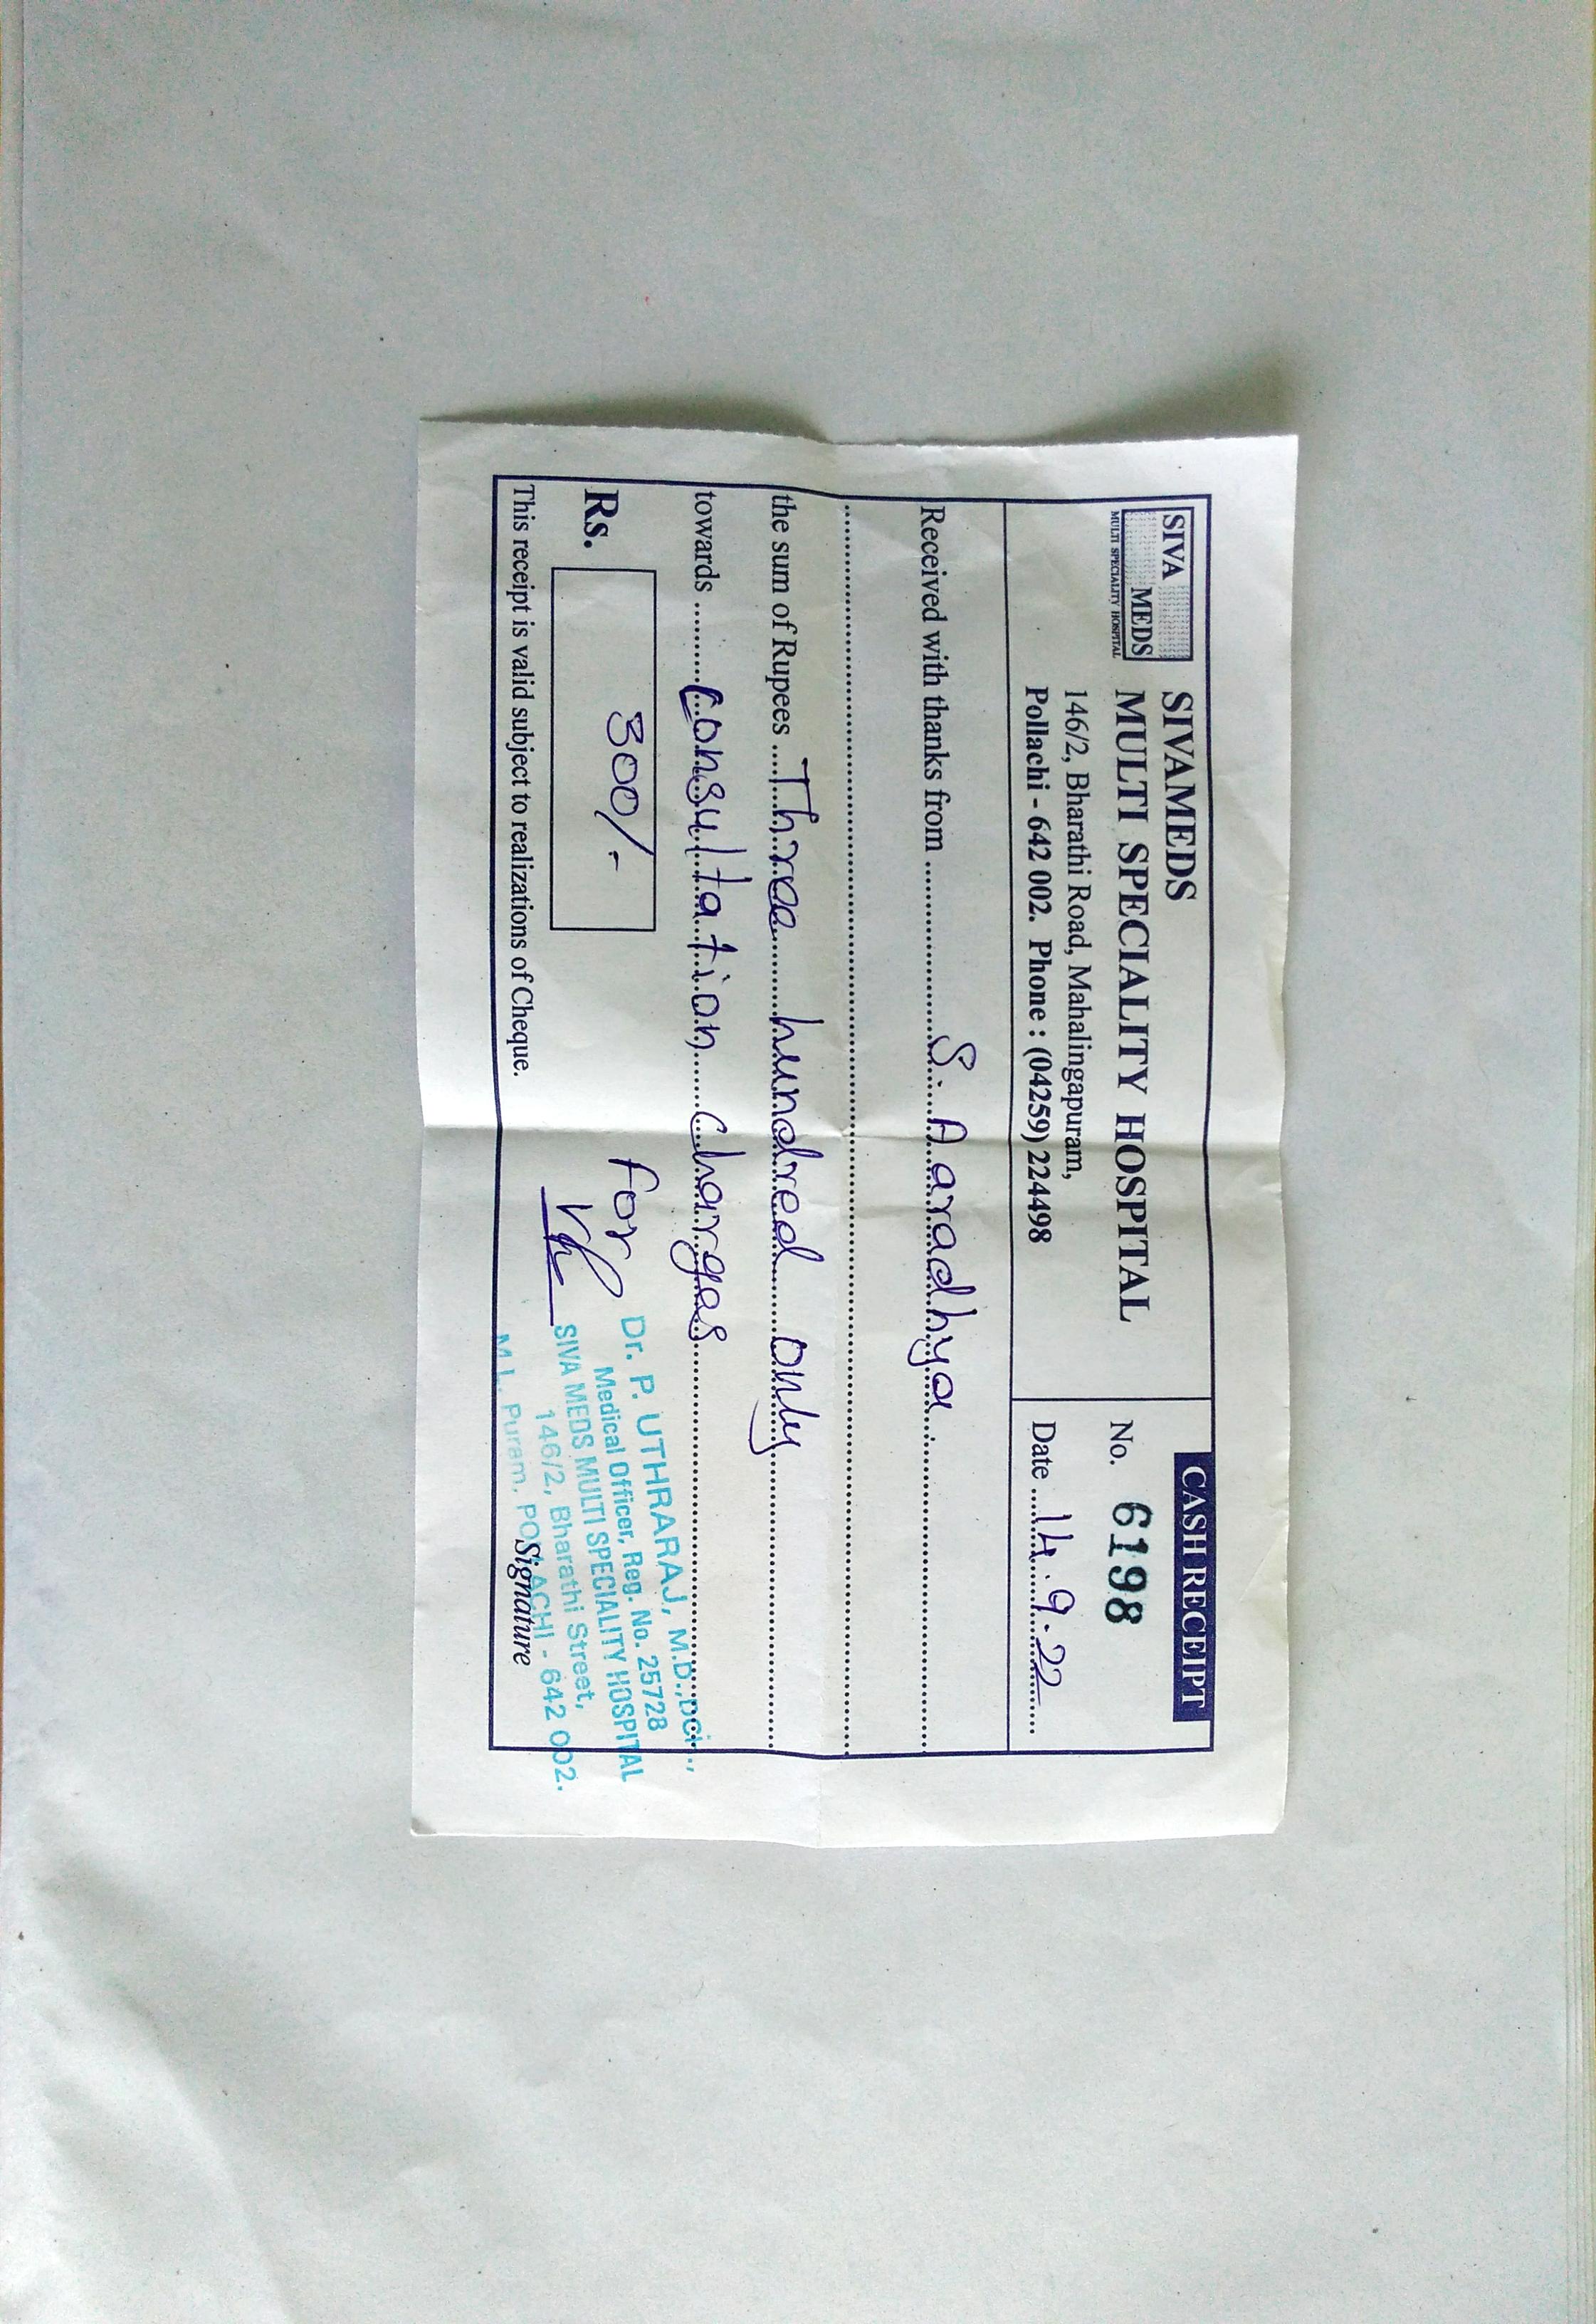 CASH RECEIPT
SIVA
MEDS
MULTI SPECIALITY HOSPITAL
SIVAMEDS
MULTI SPECIALITY HOSPITAL
146/2, Bharathi Road, Mahalingapuram,
Pollachi - 642 002. Phone : (04259) 224498
No. 6198
Date 14.9.22
Received with thanks from S. Aaradhya
the sum of Rupees Three hundred only
towards Consultation Charges
Rs. 300/-
for
Dr. P. UTHRARAJ, M.D.,
Medical Officer, Reg. No. 25728
SIVA MEDS MULTI SPECIALITY HOSPITAL
146/2, Bharathi Street,
M.L. Puram, POLLACHI - 642 002.
Signature
This receipt is valid subject to realizations of Cheque.